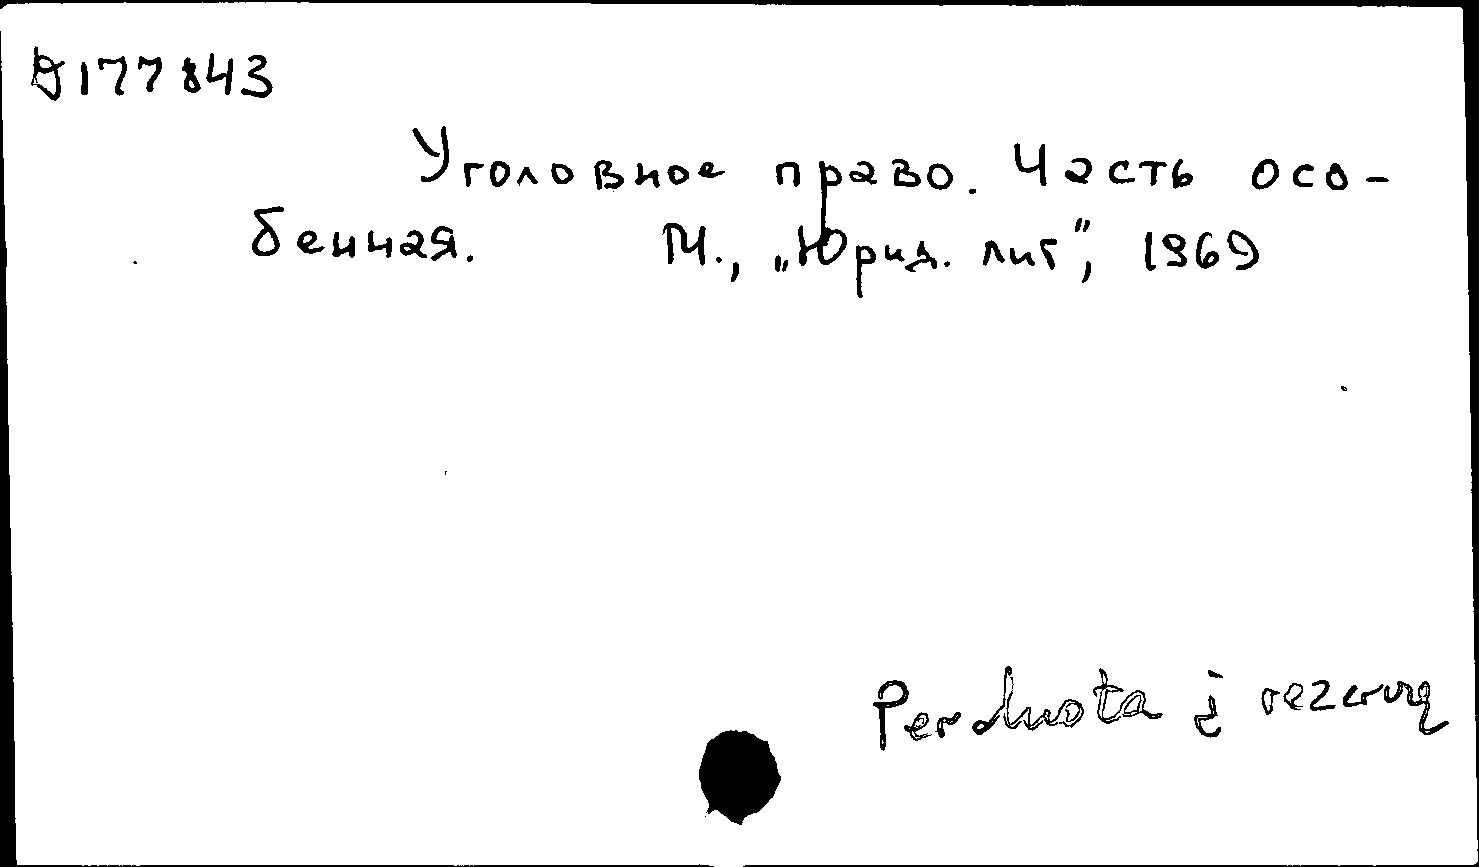 D177843
Уголовное право. Часть осо-
бенная. М., „Юрид. лит", 1969
Perduota į rezervą